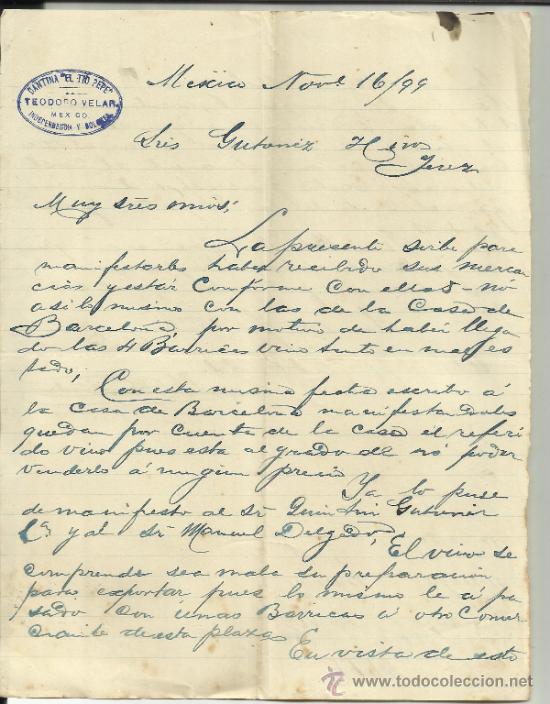 CANTINA "EL TIO PEPE"
TEODORO VELAR
MEXICO
INDEPENDENCIA Y BOLIVAR
Mexico Nov. 16/99
Sres Gutierrez Hnos
Jerez
Muy sres mios;
La presente sirbe para
manifestarles haber recibido sus merca
cias y estar Conforme con ellas - nó
asi lo mismo con las de la Casa de
Barcelona, por motivo de haber llega
do las 4 Barricas vino tinto en mal es
tado,
Con esta misma fecha escrito á
la Casa de Barcelona manifestandoles
quedan por cuenta de la casa el referi
do vino pues esta al grado de no poder
venderlo á ningun precio
Ya lo puse
de manifesto al Sr Gutierrez
y al Sr Manuel Delgado, El vino se
comprende sea mala su preparación
para exportar pues lo mismo le á pa
sado con unas Barricas á otro Comer
ciante de esta plaza
En vista de esto
www.todocoleccion.net